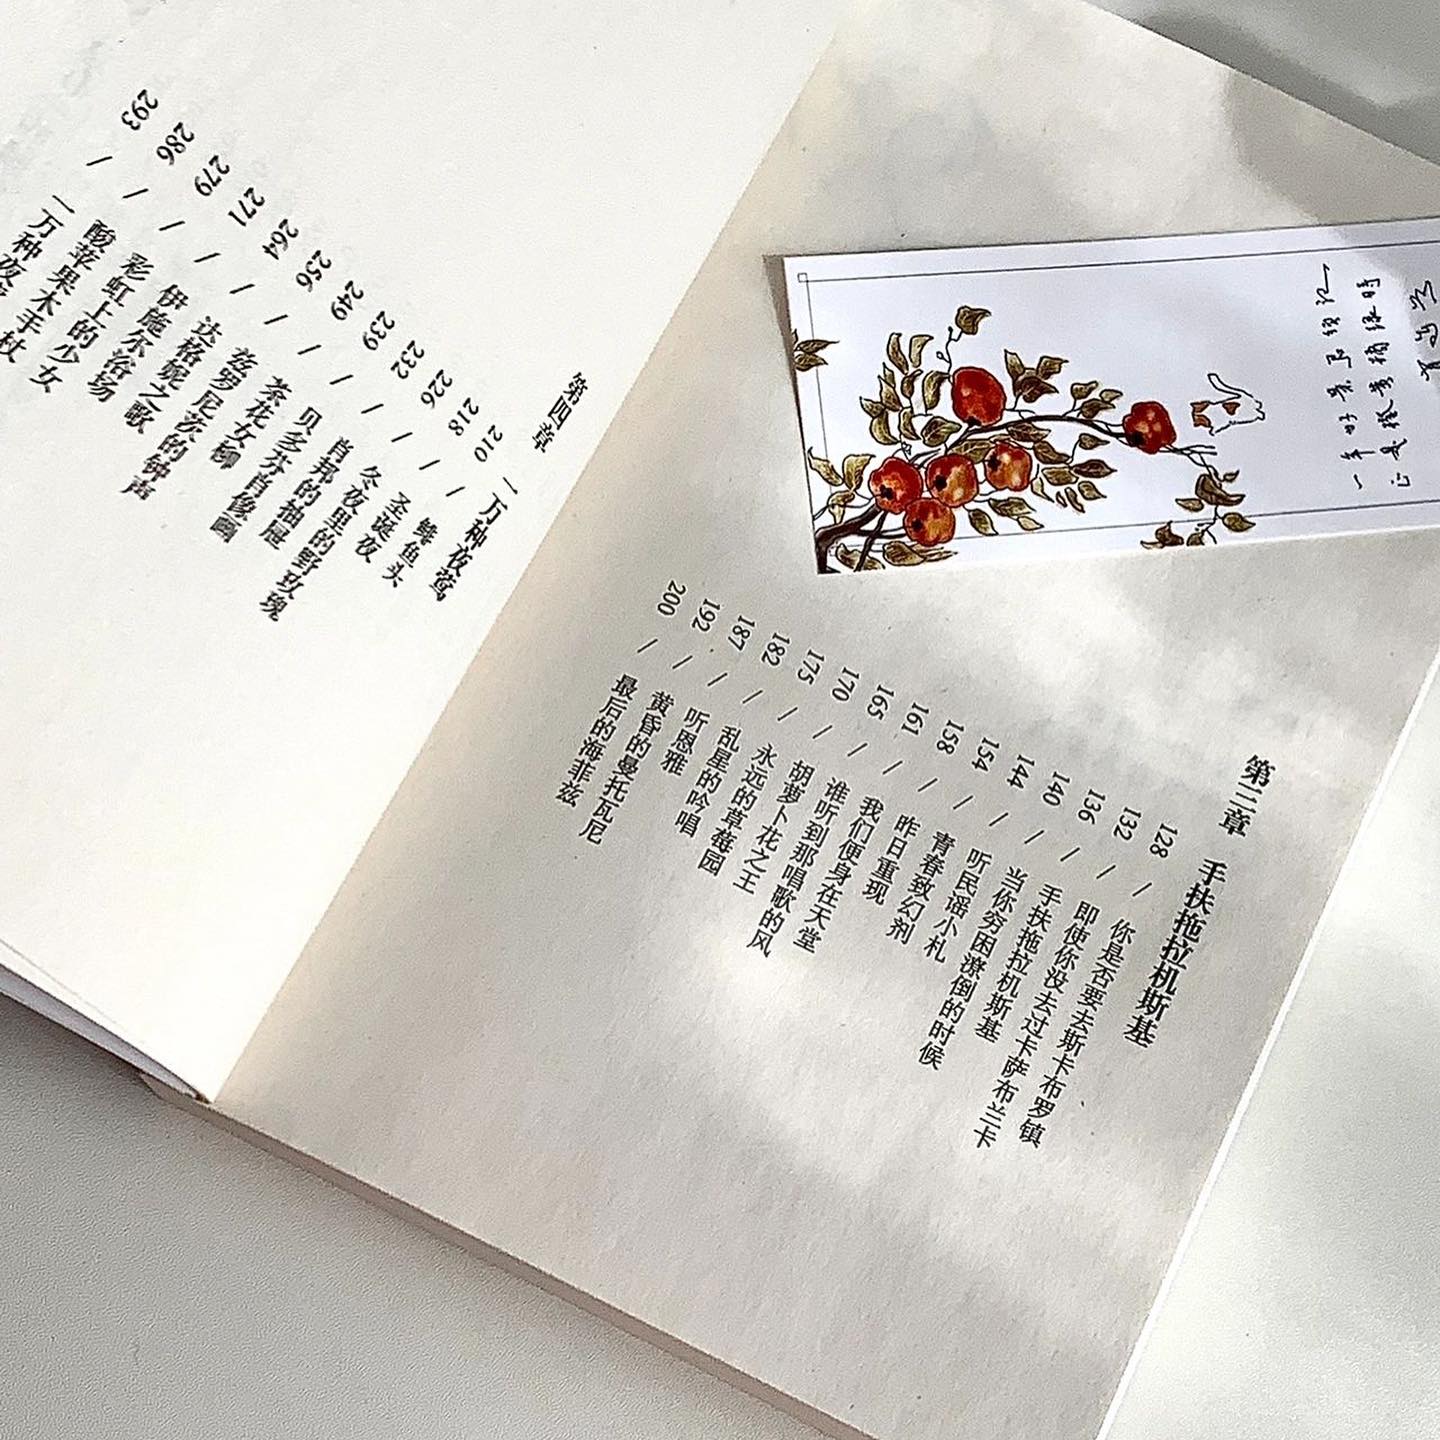 第三章 手扶拖拉机斯基
128 / 你是否要去斯卡布罗镇
132 / 即使你没去过卡萨布兰卡
136 / 手扶拖拉机斯基
140 / 当你穷困潦倒的时候
144 / 听民谣小札
154 / 青春致幻剂
158 / 昨日重现
161 / 我们便身在天堂
165 / 谁听到那唱歌的风
170 / 胡萝卜花之王
175 / 永远的草莓园
182 / 乱星的吟唱
187 / 听恩雅
192 / 黄昏的曼托瓦尼
200 / 最后的海菲兹
第四章 一万种夜莺
210 / 鲱鱼头
218 / 圣诞夜
226 / 冬夜里的野玫瑰
232 / 肖邦的抽屉
239 / 贝多芬肖像画
249 / 茶花女柳
256 / 兹罗尼茨的钟声
264 / 达格妮之歌
271 / 伊施尔浴场
279 / 彩虹上的少女
286 / 酸苹果木手杖
293 / 一万种夜莺
一年好景君须记
正是橙黄橘绿時